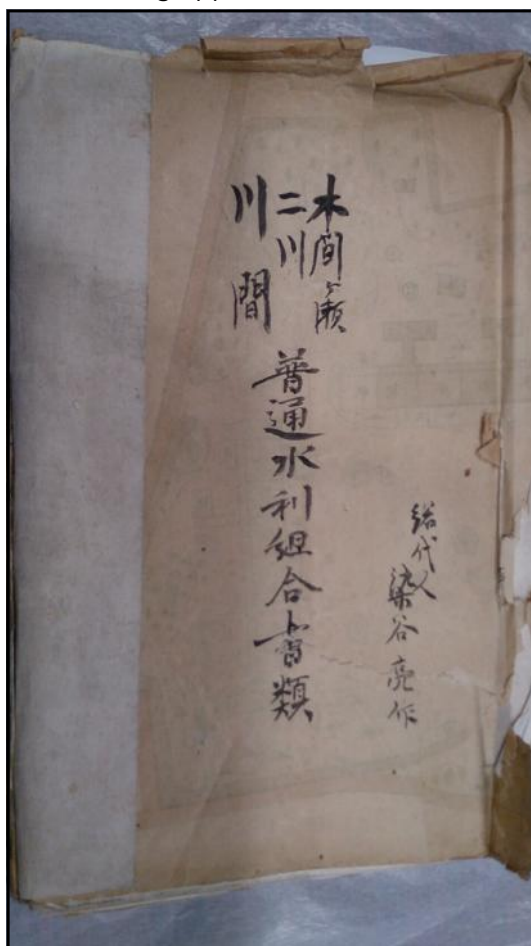 木間ヶ瀬
二川
川間
普通水利組合書類
総代人
染谷亮作